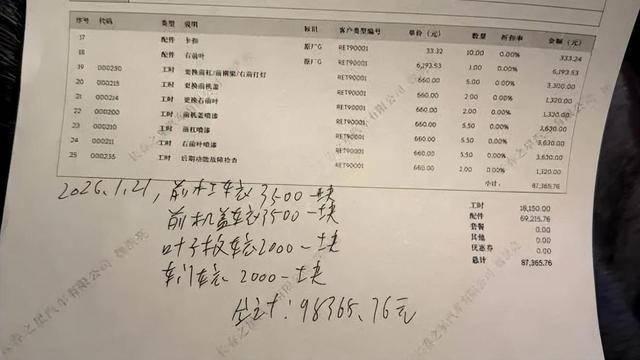 序号 代码 类型 说明 标识 客户类型编号 单价（元） 数量 折扣率 金额（元）
17 配件 卡扣 原厂G RET90001 33.32 10.00 0.00% 333.24
18 配件 右前叶 原厂G RET90001 6,193.53 1.00 0.00% 6,193.53
19 000230 工时 更换前杠/前横梁/右前灯 RET90001 660.00 5.00 0.00% 3,300.00
20 000215 工时 更换前机盖 RET90001 660.00 2.00 0.00% 1,320.00
21 000214 工时 更换右前叶 RET90001 660.00 2.00 0.00% 1,320.00
22 000200 工时 前机盖喷漆 RET90001 660.00 5.50 0.00% 3,630.00
23 000210 工时 前杠喷漆 RET90001 660.00 5.50 0.00% 3,630.00
24 000211 工时 右前叶喷漆 RET90001 660.00 5.50 0.00% 3,630.00
25 000235 工时 后期功能故障检查 RET90001 660.00 2.00 0.00% 1,320.00
小计： 87,365.76
工时 18,150.00
配件 69,215.76
套餐 0.00
其他 0.00
优惠券 0.00
总计 87,365.76
2026.1.21, 前杠车衣3500一块
前机盖车衣3500一块
叶子板车衣2000一块
车门车衣 2000一块
合计：98365.76元
长春之星汽车有限公司